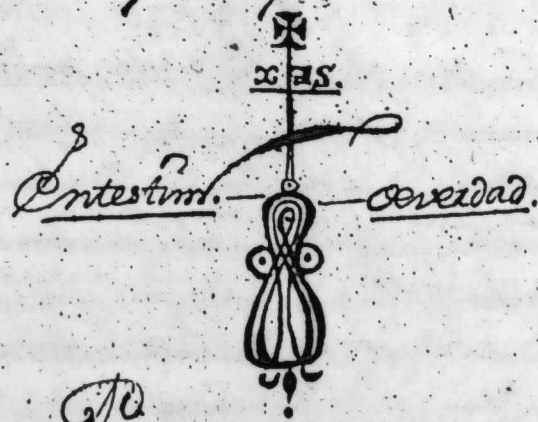 x as.
En testim. de verdad.